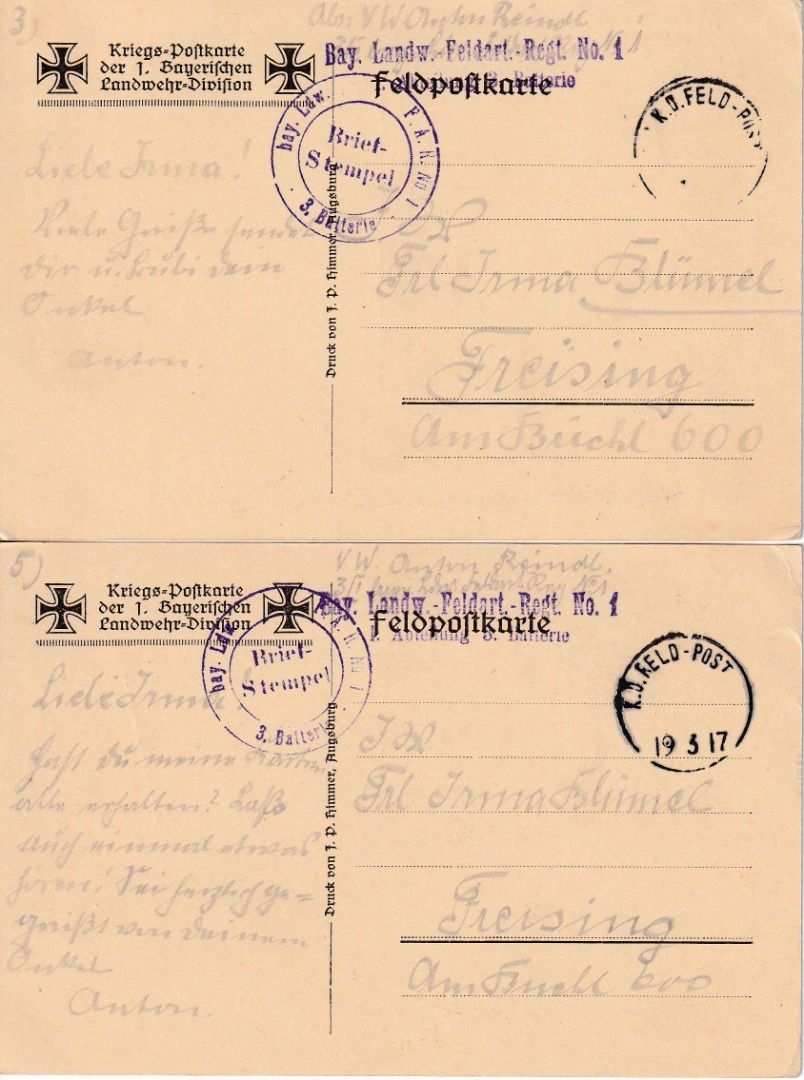 3)
Abs: VW Anton Reindl
Bay. Landw.-Feldart.-Regt. No. 1
Kriegs-Postkarte
der 1. Bayerischen
Landwehr-Division
Feldpostkarte
Batterie
bay. Ldw. F. A. R. No 1
Brief-
Stempel
3. Batterie
K.D. FELD-POST
Liebe Irma!
Viele Grüße sendet
dir u. Luli dein
Onkel
Anton.
Druck von J. P. Himmer, Augsburg
Frl Irma Blümel
Freising
Am Büchl 600
5)
VW. Anton Reindl.
3/I bayr. Ldw. Feldart. Reg No 1
Bay. Landw.-Feldart.-Regt. No. 1
Kriegs-Postkarte
der 1. Bayerischen
Landwehr-Division
Feldpostkarte
I. Abteilung 3. Batterie
bay. Ldw. F. A. R. No 1
Brief-
Stempel
3. Batterie
K.D. FELD-POST
19 3 17
Liebe Irma!
Hast du meine Karten
alle erhalten? Laß
auch einmal etwas
hören! Sei herzlich ge-
grüßt von deinem
Onkel
Anton.
Druck von J. P. Himmer, Augsburg
I W
Frl Irma Blümel
Freising
Am Buchl 600